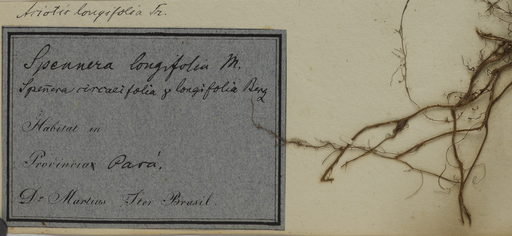 Aciotis longifolia Tr.
Spennera longifolia M.
Spenera circaeifolia γ longifolia Berg
Habitat in
Provincia Pará.
Dr Martius Iter Brasil.